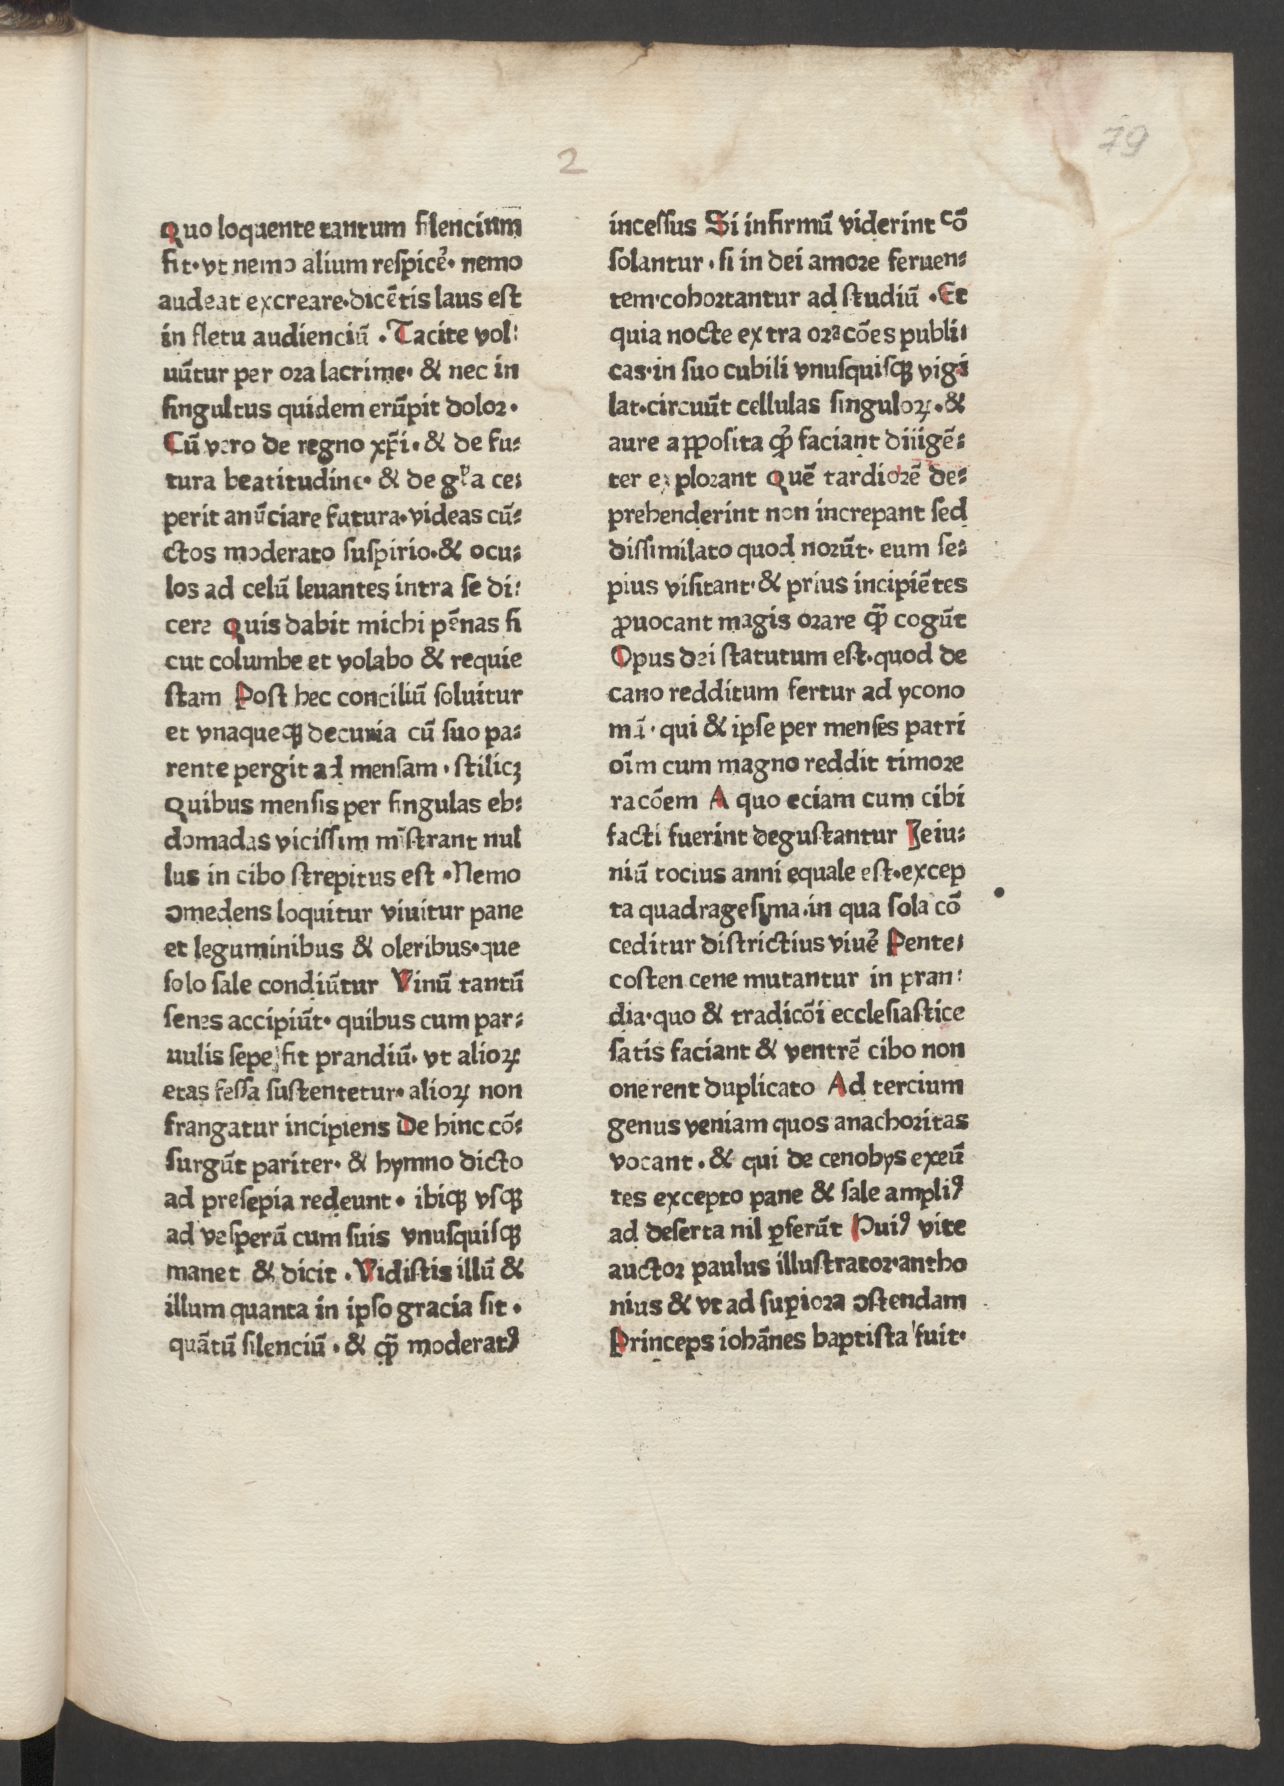 2
79
Quo loquente tantum silencium
fit· vt nemo alium respicẽ· nemo
audeat excreare·dicẽtis laus est
in fletu audienciũ · Tacite vol⸗
uũtur per ora lacrime· & nec in
singultus quidem erũpit dolor·
Cũ vero de regno xp̃i· & de fu⸗
tura beatitudine· & de gl'a ce⸗
perit anũciare futura·videas cũ⸗
ctos moderato suspirio·& ocu⸗
los ad celũ leuantes intra se di⸗
cere Quis dabit michi pẽnas si
cut columbe et volabo & requie
stam Post hec conciliũ soluitur
et vnaqueqȝ decuria cũ suo pa⸗
rente pergit ad mensam · stilicȝ
Quibus mensis per singulas eb⸗
domadas vicissim mĩstrant nul
lus in cibo strepitus est · Nemo
ↄmedens loquitur viuitur pane
et leguminibus & oleribus·que
solo sale condiũtur Vinũ tantũ
senes accipiũt· quibus cum par⸗
uulis sepe fit prandiũ· vt alioꝝ
etas fessa sustentetur· alioꝝ non
frangatur incipiens De hinc cõ⸗
surgũt pariter· & hymno dicto
ad presepia redeunt · ibiqȝ vsqȝ
ad vesperũ cum suis vnusquisqȝ
manet & dicit · Vidistis illũ &
illum quanta in ipso gracia sit ·
quãtũ silenciũ · & q̃ȝ moderatꝰ
incessus Si infirmũ viderint cõ
solantur · si in dei amore feruen⸗
tem·cohortantur ad studiũ · Et
quia nocte extra oracões publi⸗
cas·in suo cubili vnusquisqȝ vigi
lat·circuũt cellulas singuloꝝ·&
aure apposita qͥd faciant diligẽ⸗
ter explorant Quẽ tardiorẽ de⸗
prehenderint non increpant sed
dissimilato quod norũt· eum se⸗
pius visitant· & prius incipiẽtes
ꝓuocant magis orare q̃ȝ cogũt
Opus dei statutum est·quod de
cano redditum fertur ad ycono
mũ · qui & ipse per menses patri
oĩm cum magno reddit timore
racõem A quo eciam cum cibi
facti fuerint degustantur Jeiu⸗
niũ tocius anni equale est·excep
ta quadragesima·in qua sola cõ
ceditur districtius viuẽ Pente⸗
costen cene mutantur in pran⸗
dia·quo & tradicõi ecclesiastice
satis faciant & ventrẽ cibo non
onerent duplicato Ad tercium
genus veniam quos anachoritas
vocant · & qui de cenobys exeũ
tes excepto pane & sale ampliꝰ
ad deserta nil ꝑferũt Huiꝰ vite
auctor paulus illustrator·antho
nius & vt ad suꝑiora ↄstendam
Princeps iohãnes baptista fuit·